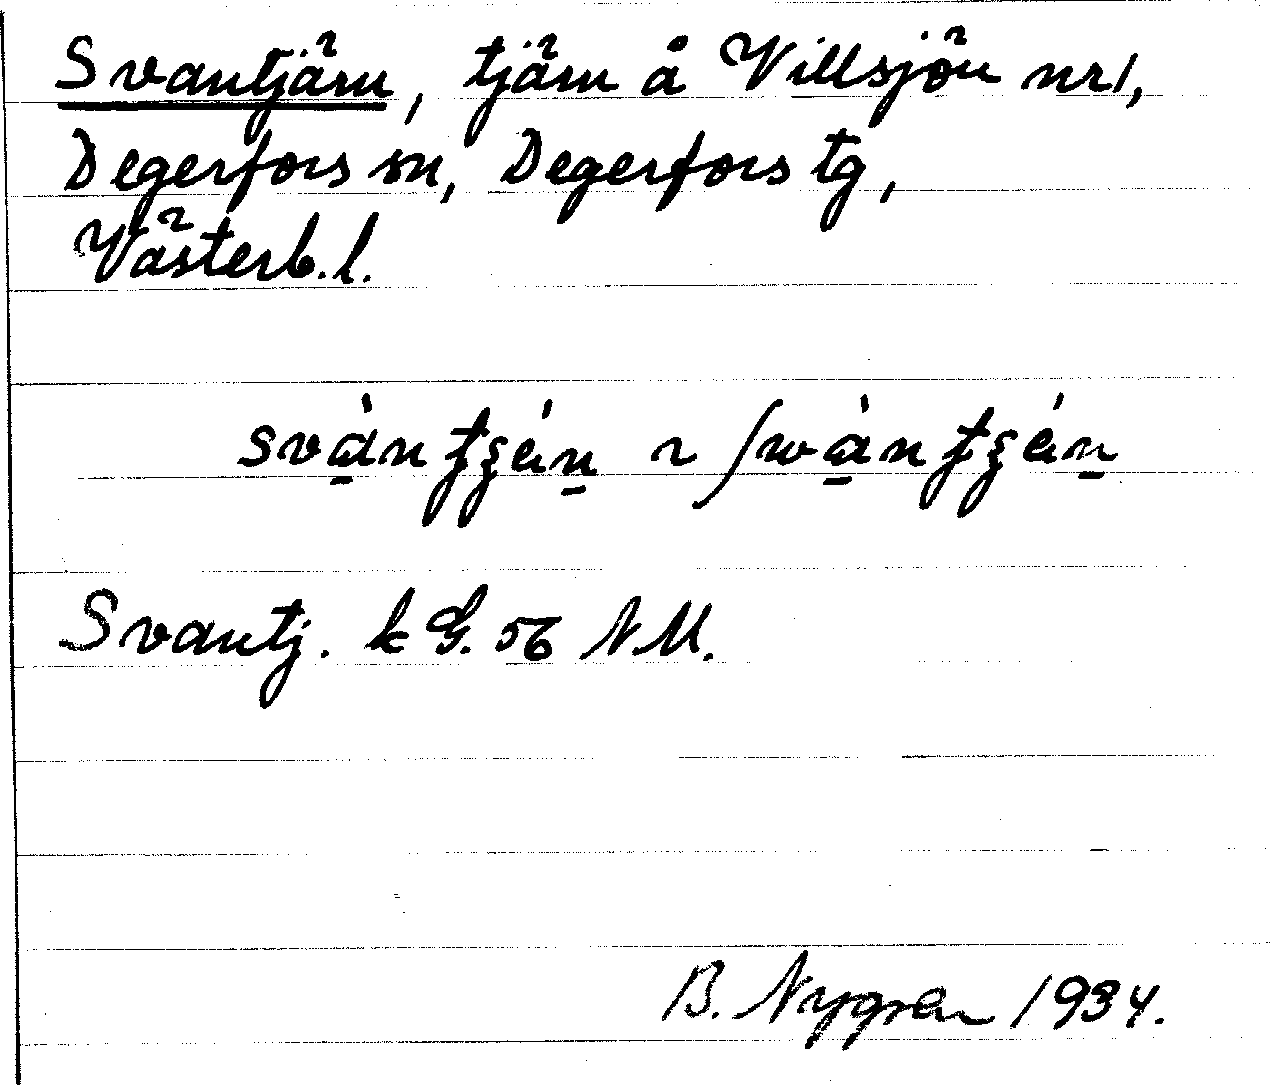 Svantjärn, tjärn å Villsjön nr 1,
Degerfors sn, Degerfors tg,
Västerb. l.
svàntʒén ~ ʃwàntʒén
Svantj. k G. 56 NM.
B. Nygren 1934.